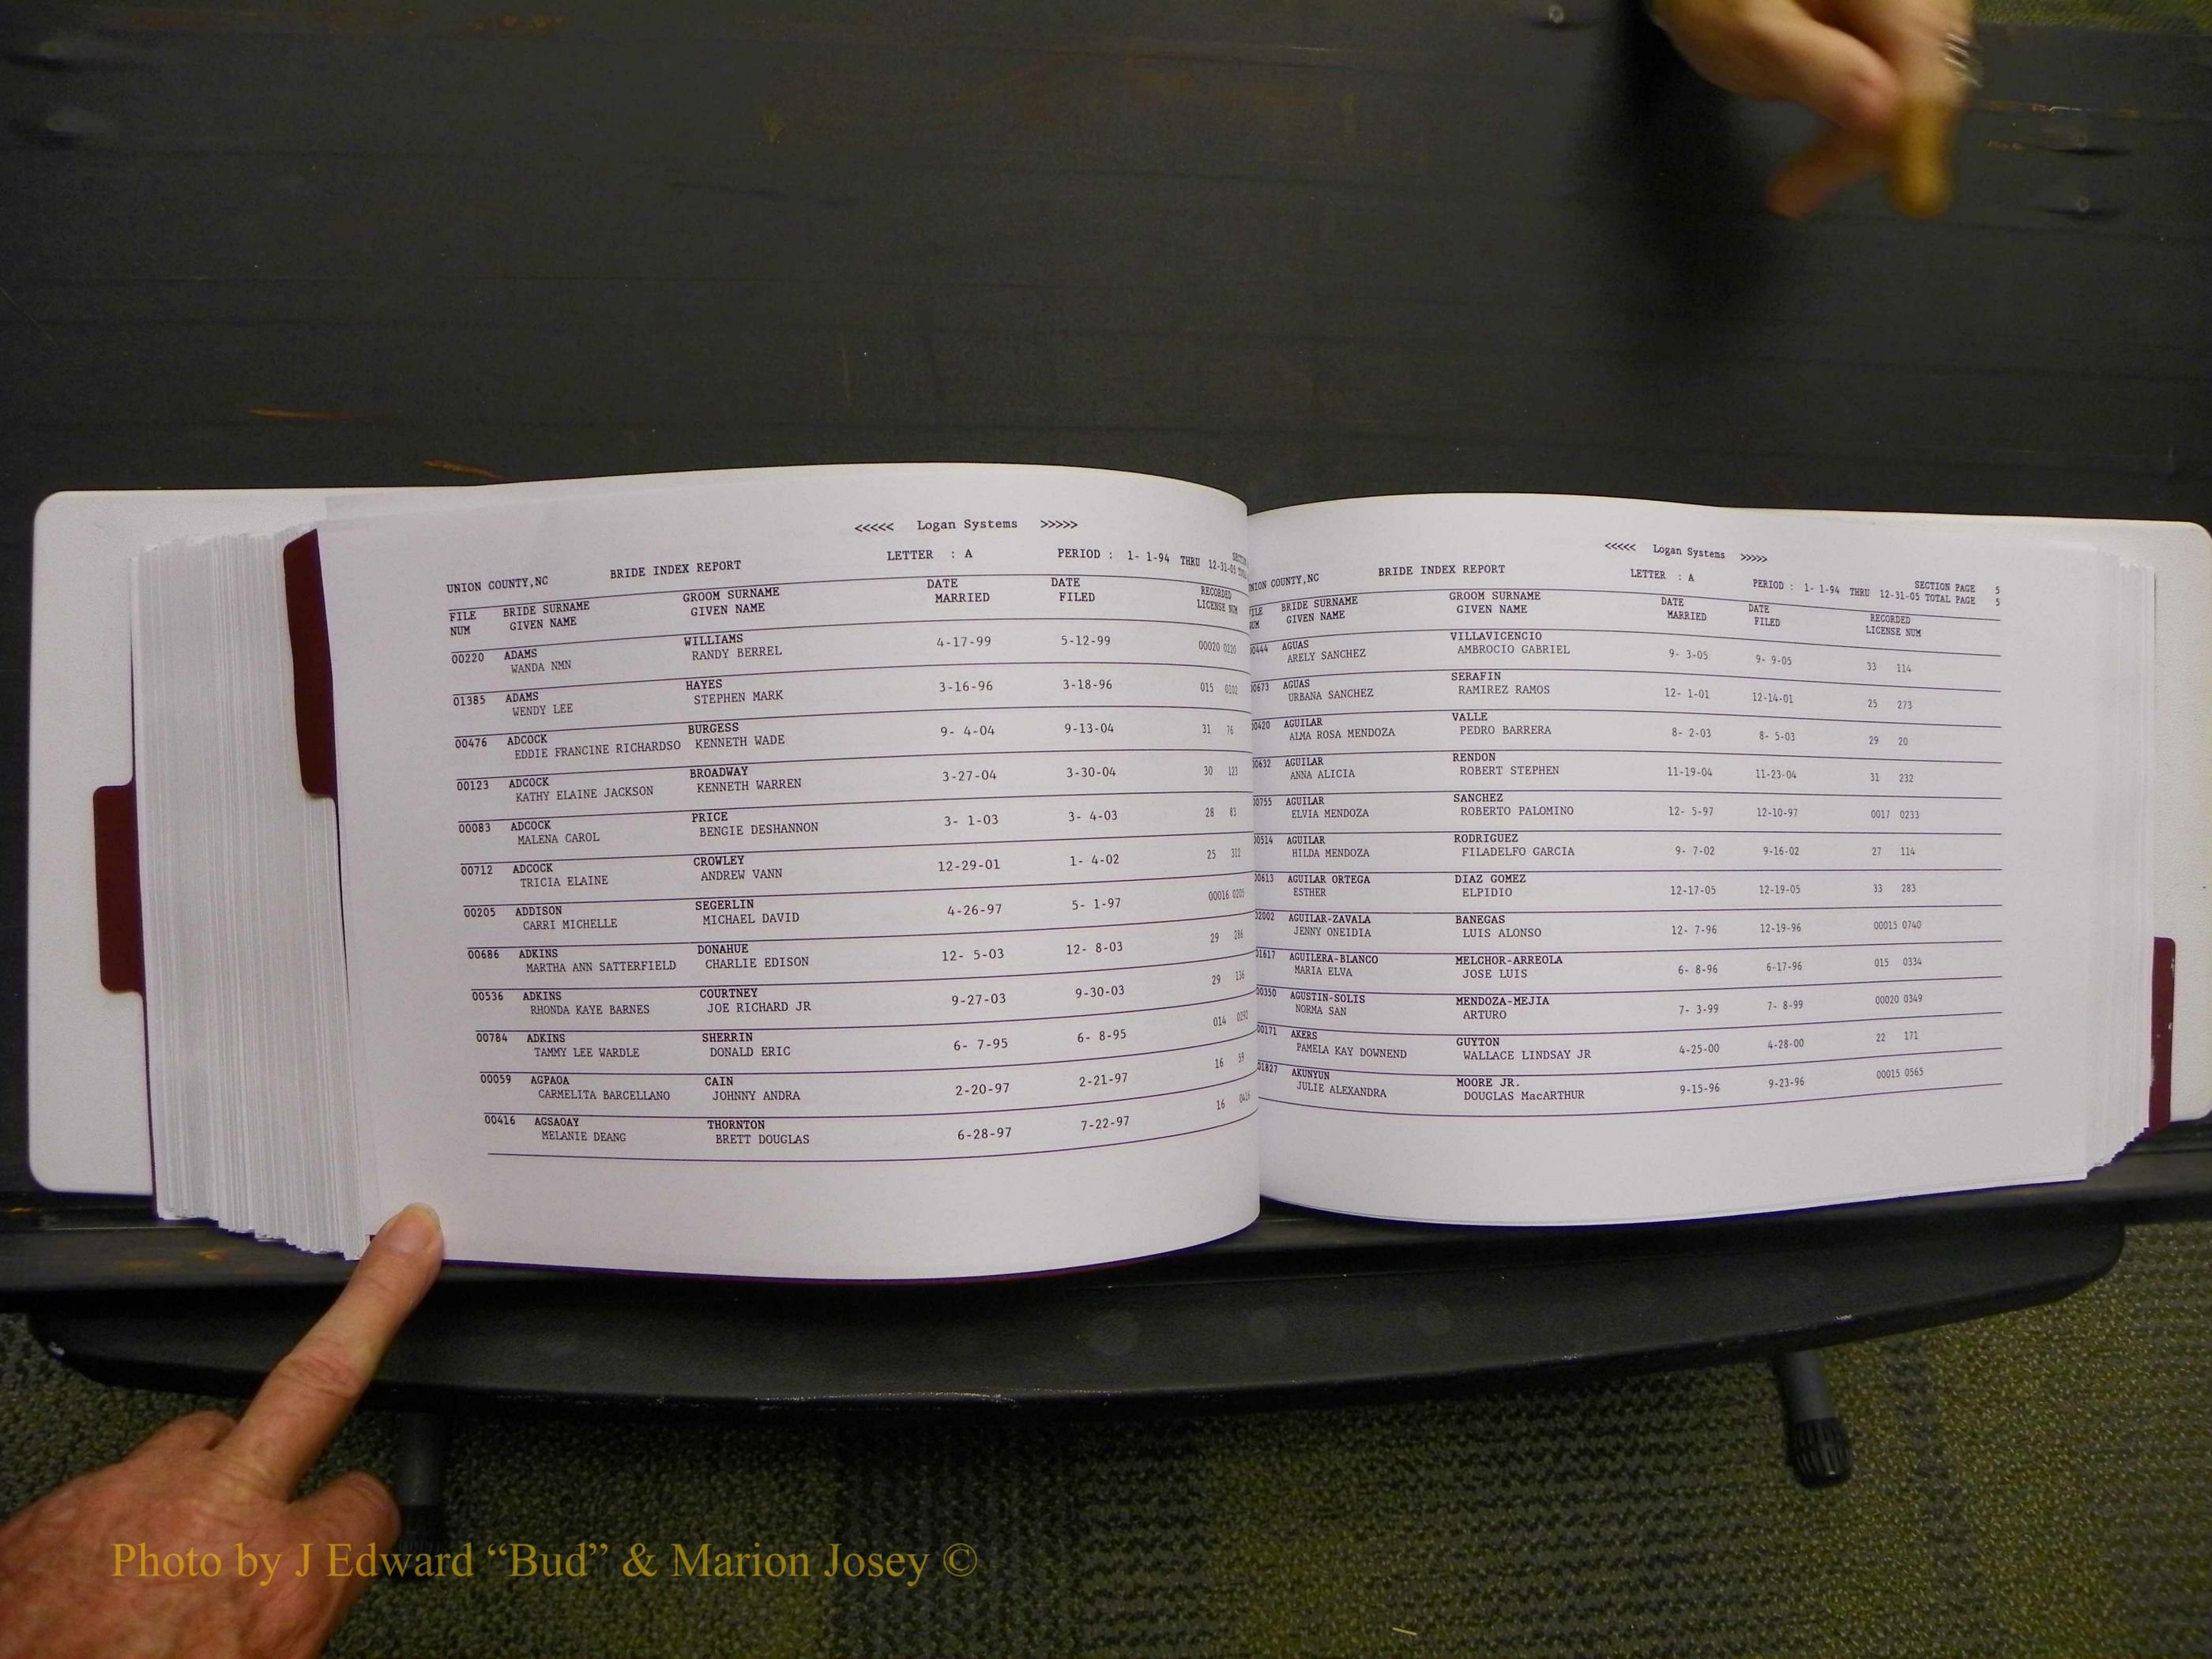 <<<<< Logan Systems >>>>>
UNION COUNTY,NC BRIDE INDEX REPORT LETTER : A PERIOD : 1- 1-94 THRU 12-31-05
FILE BRIDE SURNAME GROOM SURNAME DATE DATE RECORDED
NUM GIVEN NAME GIVEN NAME MARRIED FILED LICENSE NUM
00220 ADAMS WILLIAMS 4-17-99 5-12-99 00020 0220
WANDA NMN RANDY BERREL
01385 ADAMS HAYES 3-16-96 3-18-96 015 0102
WENDY LEE STEPHEN MARK
00476 ADCOCK BURGESS 9- 4-04 9-13-04 31 76
EDDIE FRANCINE RICHARDSO KENNETH WADE
00123 ADCOCK BROADWAY 3-27-04 3-30-04 30 123
KATHY ELAINE JACKSON KENNETH WARREN
00083 ADCOCK PRICE 3- 1-03 3- 4-03 28 83
MALENA CAROL BENGIE DESHANNON
00712 ADCOCK CROWLEY 12-29-01 1- 4-02 25 312
TRICIA ELAINE ANDREW VANN
00205 ADDISON SEGERLIN 4-26-97 5- 1-97 00016 0205
CARRI MICHELLE MICHAEL DAVID
00686 ADKINS DONAHUE 12- 5-03 12- 8-03 29 286
MARTHA ANN SATTERFIELD CHARLIE EDISON
00536 ADKINS COURTNEY 9-27-03 9-30-03 29 136
RHONDA KAYE BARNES JOE RICHARD JR
00784 ADKINS SHERRIN 6- 7-95 6- 8-95 014 0292
TAMMY LEE WARDLE DONALD ERIC
00059 AGPAOA CAIN 2-20-97 2-21-97 16 59
CARMELITA BARCELLANO JOHNNY ANDRA
00416 AGSAOAY THORNTON 6-28-97 7-22-97 16 0416
MELANIE DEANG BRETT DOUGLAS
<<<<< Logan Systems >>>>>
UNION COUNTY,NC BRIDE INDEX REPORT LETTER : A SECTION PAGE 5
PERIOD : 1- 1-94 THRU 12-31-05 TOTAL PAGE 5
BRIDE SURNAME GROOM SURNAME DATE DATE RECORDED
GIVEN NAME GIVEN NAME MARRIED FILED LICENSE NUM
00444 AGUAS VILLAVICENCIO 9- 3-05 9- 9-05 33 114
ARELY SANCHEZ AMBROCIO GABRIEL
00673 AGUAS SERAFIN 12- 1-01 12-14-01 25 273
URBANA SANCHEZ RAMIREZ RAMOS
00420 AGUILAR VALLE 8- 2-03 8- 5-03 29 20
ALMA ROSA MENDOZA PEDRO BARRERA
00632 AGUILAR RENDON 11-19-04 11-23-04 31 232
ANNA ALICIA ROBERT STEPHEN
00755 AGUILAR SANCHEZ 12- 5-97 12-10-97 0017 0233
ELVIA MENDOZA ROBERTO PALOMINO
00514 AGUILAR RODRIGUEZ 9- 7-02 9-16-02 27 114
HILDA MENDOZA FILADELFO GARCIA
00613 AGUILAR ORTEGA DIAZ GOMEZ 12-17-05 12-19-05 33 283
ESTHER ELPIDIO
02002 AGUILAR-ZAVALA BANEGAS 12- 7-96 12-19-96 00015 0740
JENNY ONEIDIA LUIS ALONSO
01617 AGUILERA-BLANCO MELCHOR-ARREOLA 6- 8-96 6-17-96 015 0334
MARIA ELVA JOSE LUIS
00350 AGUSTIN-SOLIS MENDOZA-MEJIA 7- 3-99 7- 8-99 00020 0349
NORMA SAN ARTURO
00171 AKERS GUYTON 4-25-00 4-28-00 22 171
PAMELA KAY DOWNEND WALLACE LINDSAY JR
01827 AKUNYUN MOORE JR. 9-15-96 9-23-96 00015 0565
JULIE ALEXANDRA DOUGLAS MacARTHUR
Photo by J Edward “Bud” & Marion Josey ©